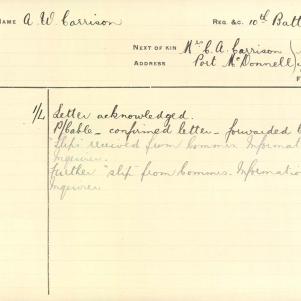 NAME A. W Carrison REG. &C. 10th Batt
NEXT OF KIN Mrs C. A. Carrison
ADDRESS Port McDonnell
1/4 Letter acknowledged.
P/Cable – confirmed letter – forwarded t
"slip" received from Commrs. Informat
Inquirer.
Further "slip" from Commrs. Information
Inquirer.